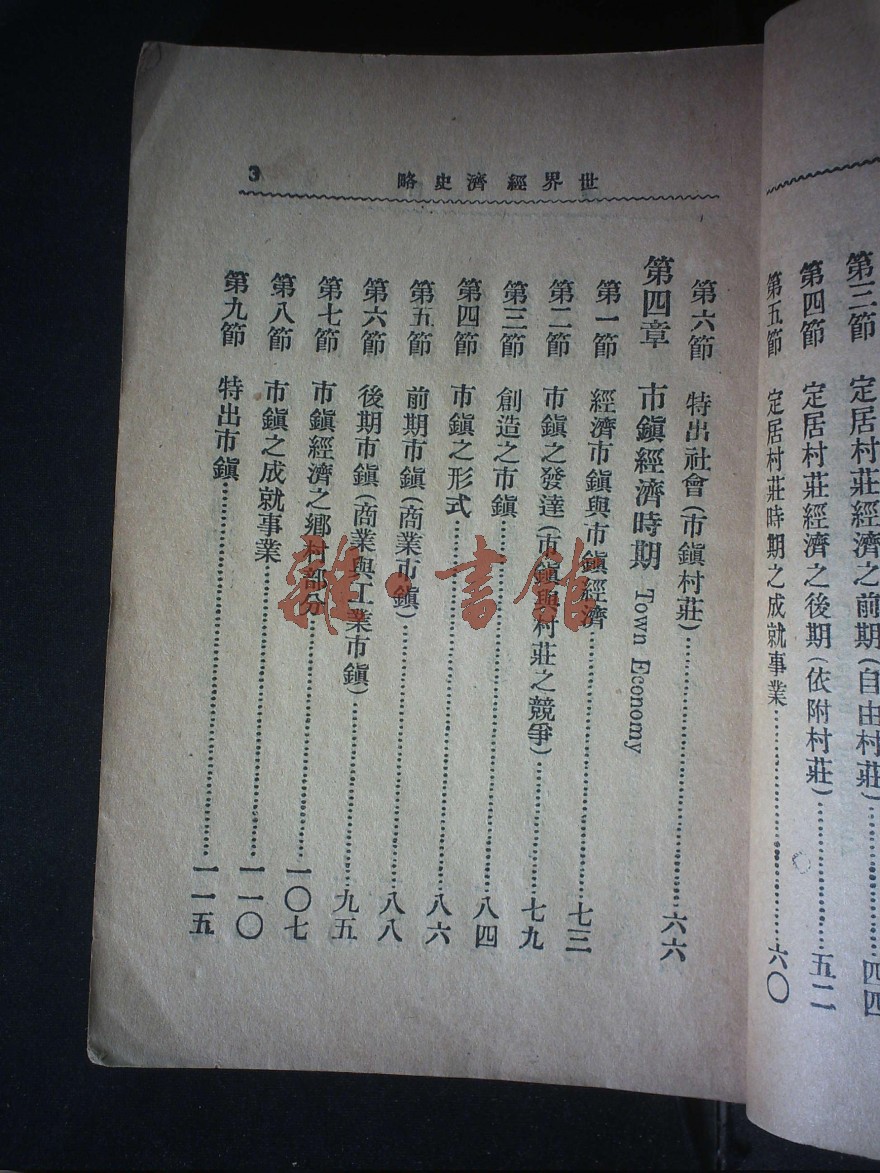 第三節 定居村莊經濟之前期(自由村莊)……四四
第四節 定居村莊經濟之後期(依附村莊)……五二
第五節 定居村莊時期之成就事業……六〇
世界經濟史略
3
第六節 特出社會(市鎭村莊)……六六
第四章 市鎭經濟時期 Town Economy
第一節 經濟市鎭與市鎭經濟……七三
第二節 市鎭之發達(市鎭與村莊之競爭)……七九
第三節 創造之市鎭……八四
第四節 市鎭之形式……八六
第五節 前期市鎭(商業市鎭)……八八
第六節 後期市鎭(商業與工業市鎭)……九五
第七節 市鎭經濟之鄉村部分……一〇七
第八節 市鎭之成就事業……一一〇
第九節 特出市鎭……一一五
雜·書館